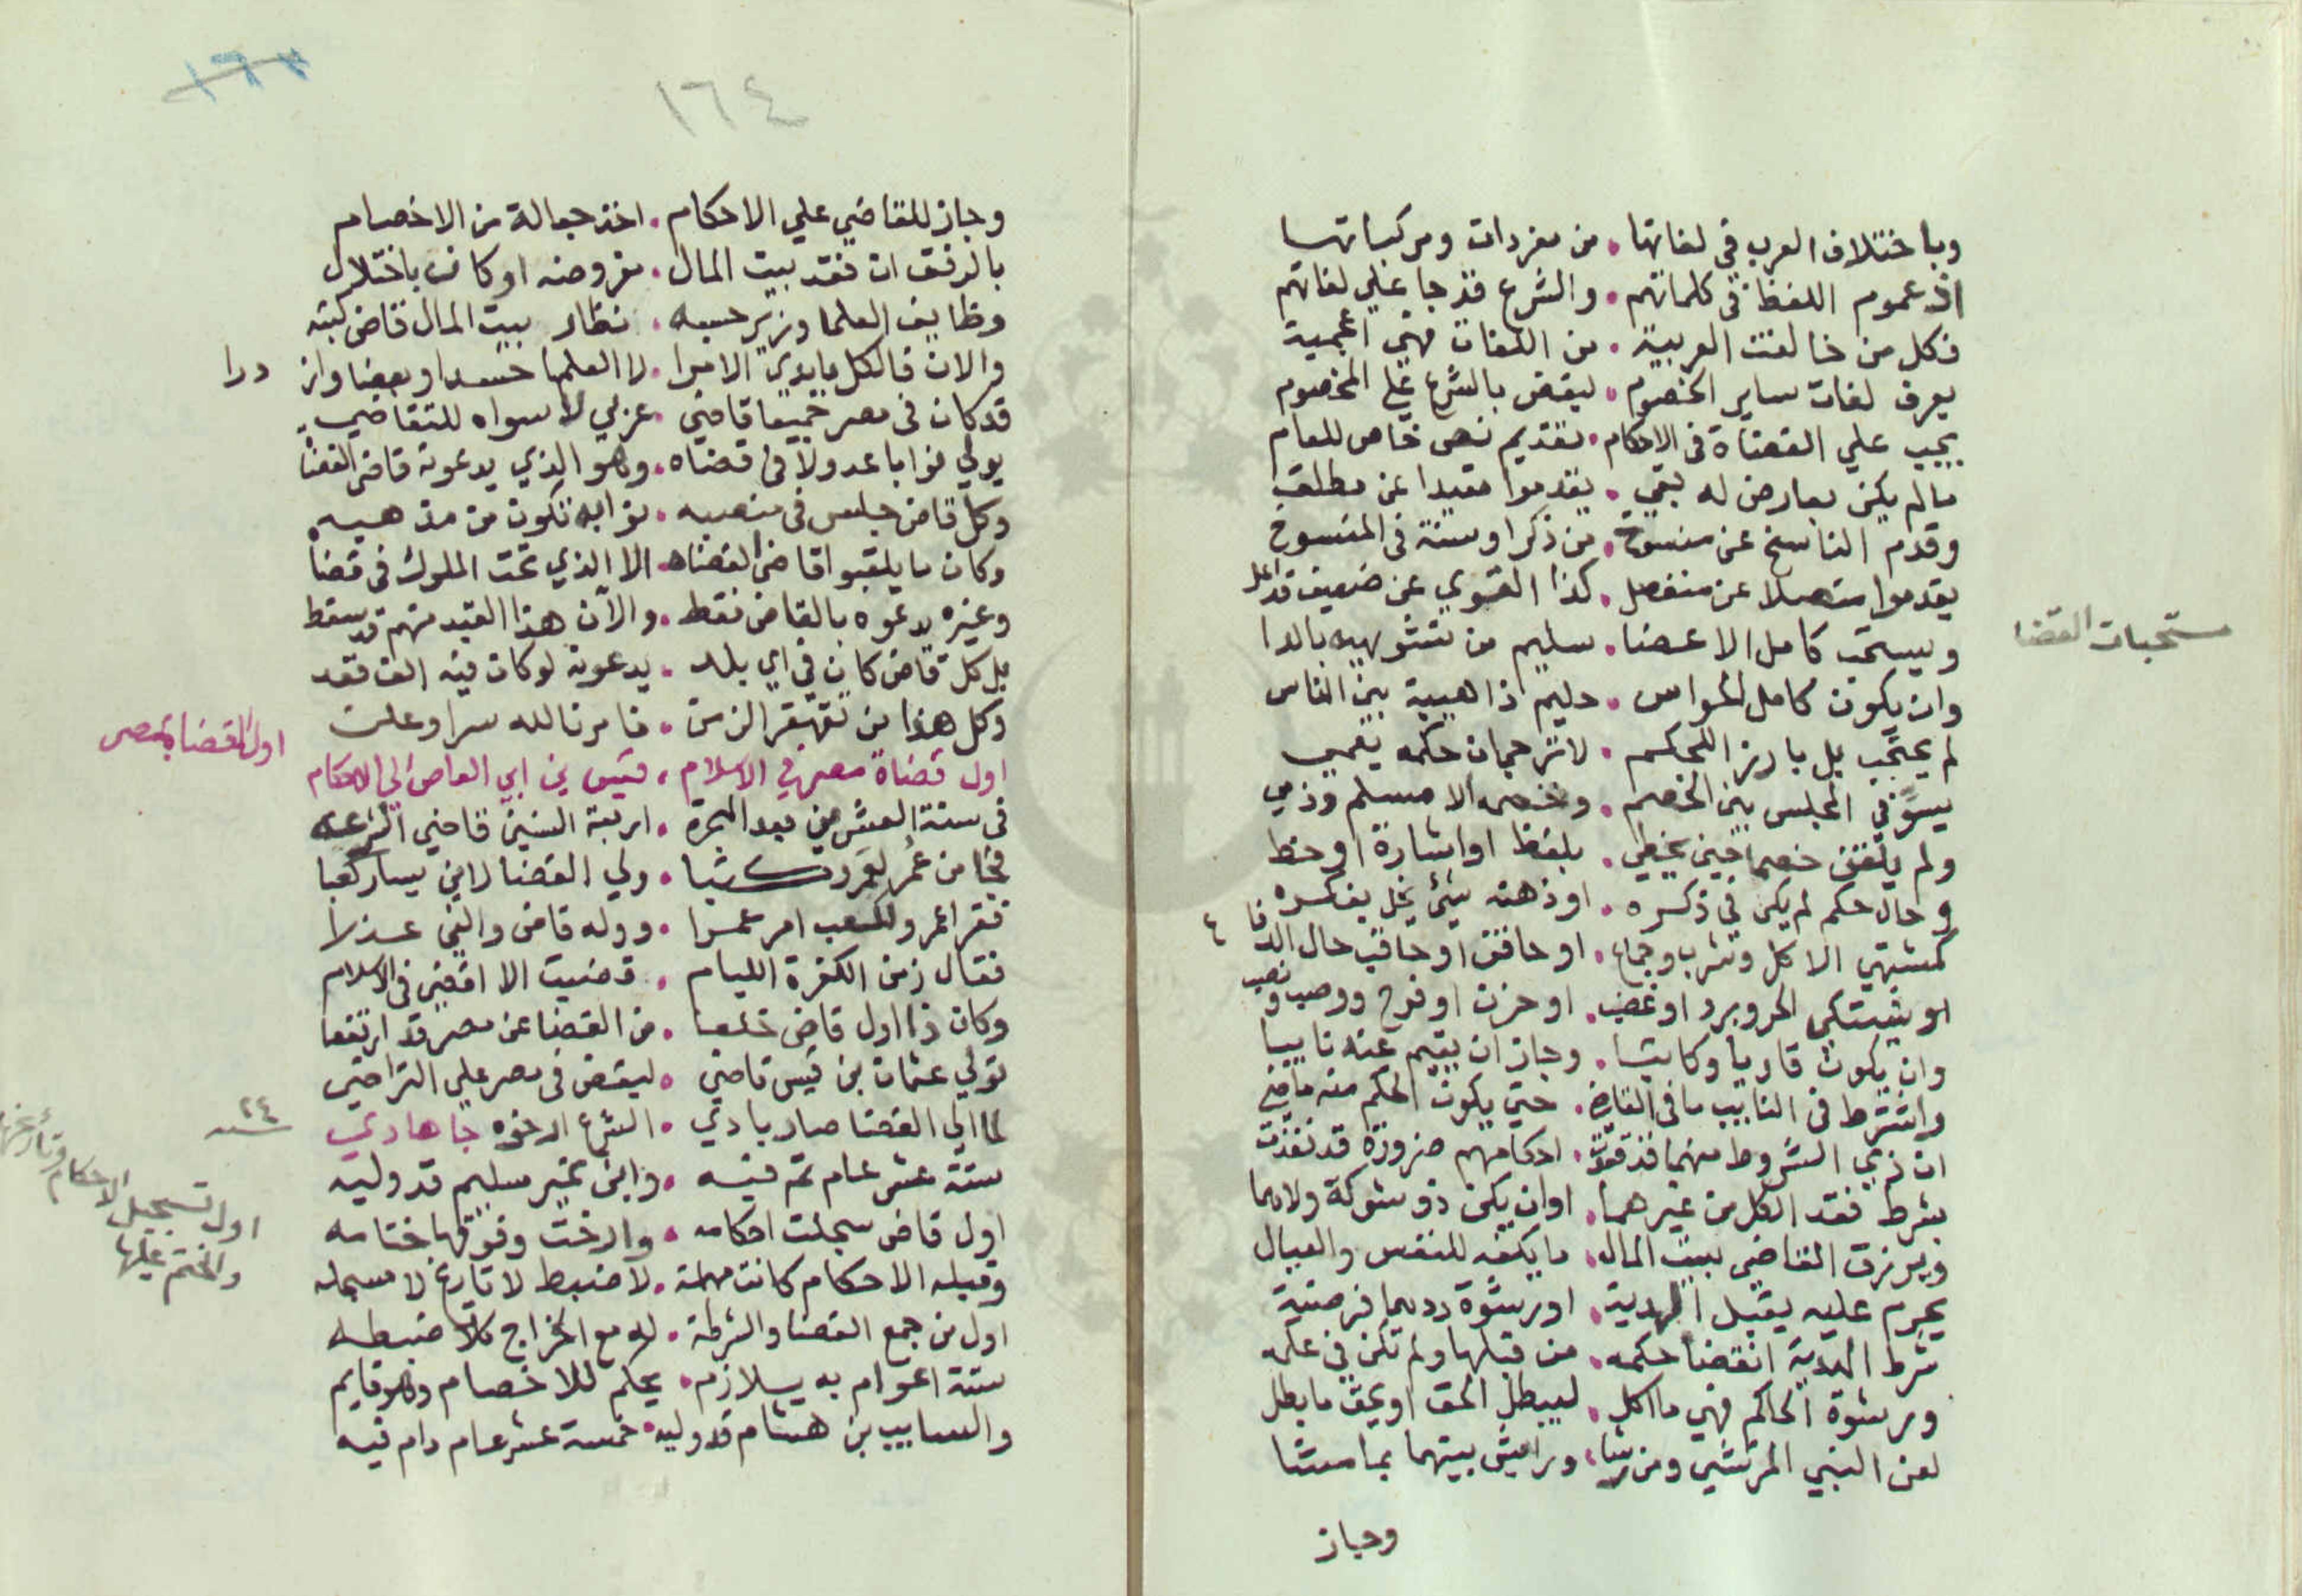 وباختلاف العرب في لغاتها . من مفردات ومركباتها
اذ عموم اللفظ في كلماتهم . والشرع قد جا علي لغاتهم
فكل من خالفت العربية . من اللغات فهي اعجمية
يعرف لغات ساير الخصوم . ليقض بالشرع علي المخصوم
يجب علي القضاة في الاحكام . تقديم نص خاص للعام
مالم يكن معارض له بقي . يقدموا مقيدا عن مطلق
وقدم الناسخ عن منسوخ . من ذكر او سنة في المنسوخ
يقدموا متصلا عن منفصل . كذا القوي عن ضعيف قد
مستحبات القضا
ويستحب كامل الاعضا . سليم من تشويهه بالدا
وان يكون كامل الحواس . حليم ذا هيبة بين الناس
لم يحتجب بل بارز للحكم . لا ترجمان حكمه
يسوّي في المجلس بين الخصم . وخصمه الا مسلم وذمي
ولم يلقن خصما حين يخطي . بلفظ او اشارة او خط
وحال حكم لم يكن في ذكره . او ذهنه شئ يخل بفكره
كمشتهي الاكل وشرب وجماع . او حاقن او حاقب حال
او يشتكي الحر وبرد او غضب . او حزن او فرح ووصب ونصب
وان يكون قاريا وكاتبا . وجاز ان يقيم عنه نايبا
واشترط في النايب ما في القاضي . حتي يكون الحكم منه ماضي
ان ذي الشروط منهما قد فقدت . احكامهم ضرورة قد نفذت
بشرط فقد الكل من غيرهما . او ان يكن ذو شوكة ولاهما
ويرزق القاضي ببيت المال . ما يكفه للنفس والعيال
يحرم عليه يقبل الهدية . او رشوة ردهما فرضية
شرط الهدية انقضا حكمه . من قبلها ولم تكن في علمه
ورشوة الحاكم فهي ما اكل . ليبطل الحق او يحق ما بطل
لعن النبي المرتشي ومن رشا . ورايش بينهما بما مشا
وجاز
١٦٤
وجاز للقاضي علي الاحكام . اخذ جعالة من الاخصام
بالرفق ان فقد بيت المال . مفروضه او كان باختلال
وظايف العلما وزير حسبه . نظار بيت المال قاض كتبه
والان فالكل بايدي الامرا . لا العلما حسدا وبغضا واز درا
قد كان في مصر جميعا قاضي . عزلي لا سواه للتقاضي
يولي نوابا عدولا في قضاه . وهو الذي يدعونه قاضي القضا
وكل قاض جلس في منصبه . نوابه تكون من مذهبه
وكان ما يلقبوا قاضي القضاه . الا الذي تحت الملوك في قضا
وغيره يدعوه بالقاض فقط . والآن هذا القيد منهم قد سقط
بل كل قاض كان في اي بلد . يدعونه لو كان فيه الف فقد
وكل هذا من تقهقر الزمن . فامرنا لله سرا وعلن
اول القضا بمصر
اول قضاة مصر في الاسلام . قيس بن ابي العاص الي الاحكام
في سنة العشرين بعد الهجرة . اربعة السنين قاضي الشرعه
فجا من عمر لعمرو كتبا . ولي القضا لابن يسار كعبا
فقرا عمرو لكعب امر عمرا . ووله قاض والفي عذرا
فقال زمن الكفرة الليام . قضيت الا اقضي في الاسلام
وكان ذا اول قاض خلعا . من القضا عن مصر قد ارتفعا
تولي عثمان بن قيس قاضي . ليقض في مصر علي التراضي
٢٤ سنه
لما الي القضا صار بادي . الشرع ارخوه جا هادي
ستة عشر عام تم فيه . وابن عتر سليم قد وليه
اول تسجيل الاحكام وتأريخها والختم عليها
اول قاض سجلت احكامه . وارخت وفوقها ختامه
وقبله الاحكام كانت مهملة . لا ضبط لا تاريخ لا مسجله
اول من جمع القضا والشرطة . له مع الخراج كلا ضبطه
ستة اعوام به يلازم . يحكم للاخصام وهو قايم
والسايب بن هشام قد وليه . خمسة عشر عام دام فيه